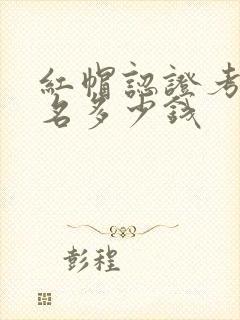 紅帽認證考
名多少錢
彭程